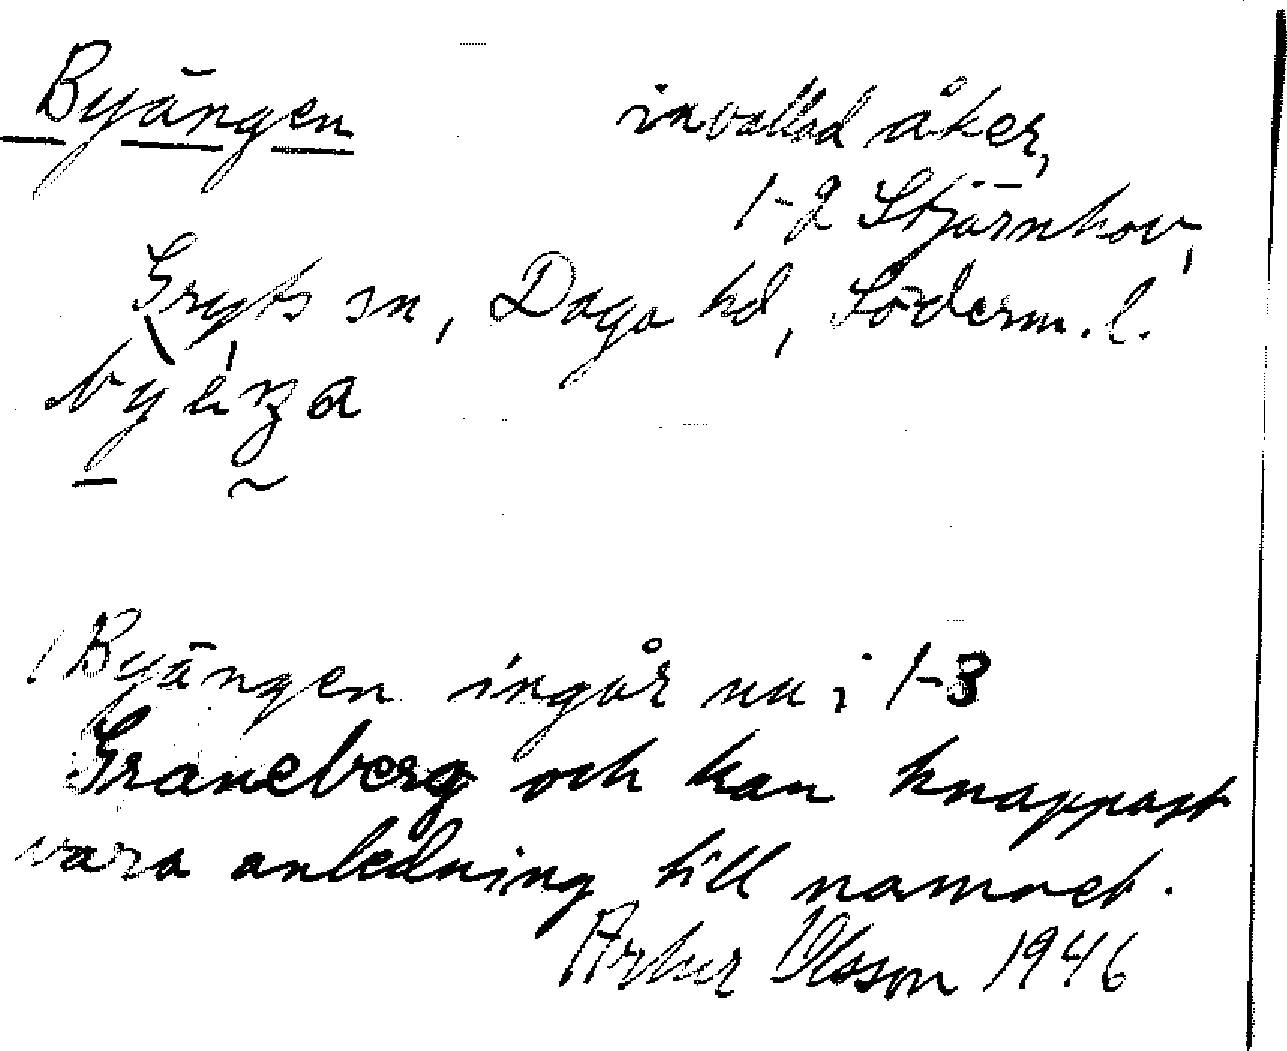 Byängen
invallad åker,
1-2 Stjärnhov,
Gryts sn, Daga hd, Söderm. l.
Byängen ingår nu i 1-3
Graneberg och kan knappast
vara anledning till namnet.
Artur Olsson 1946